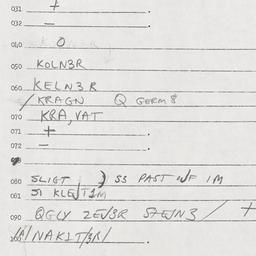 031 +
032 —
040 O
050 KOLN3R
060 KELN3R
/KRAGN Q GERM 8
070 KRA, VAT
071 +
072 —
080 SLIGT ) SS PAST OF IM
081 SI KLE
090 QGLY ZEJ3R /  +
/A/NAKIT/3R/